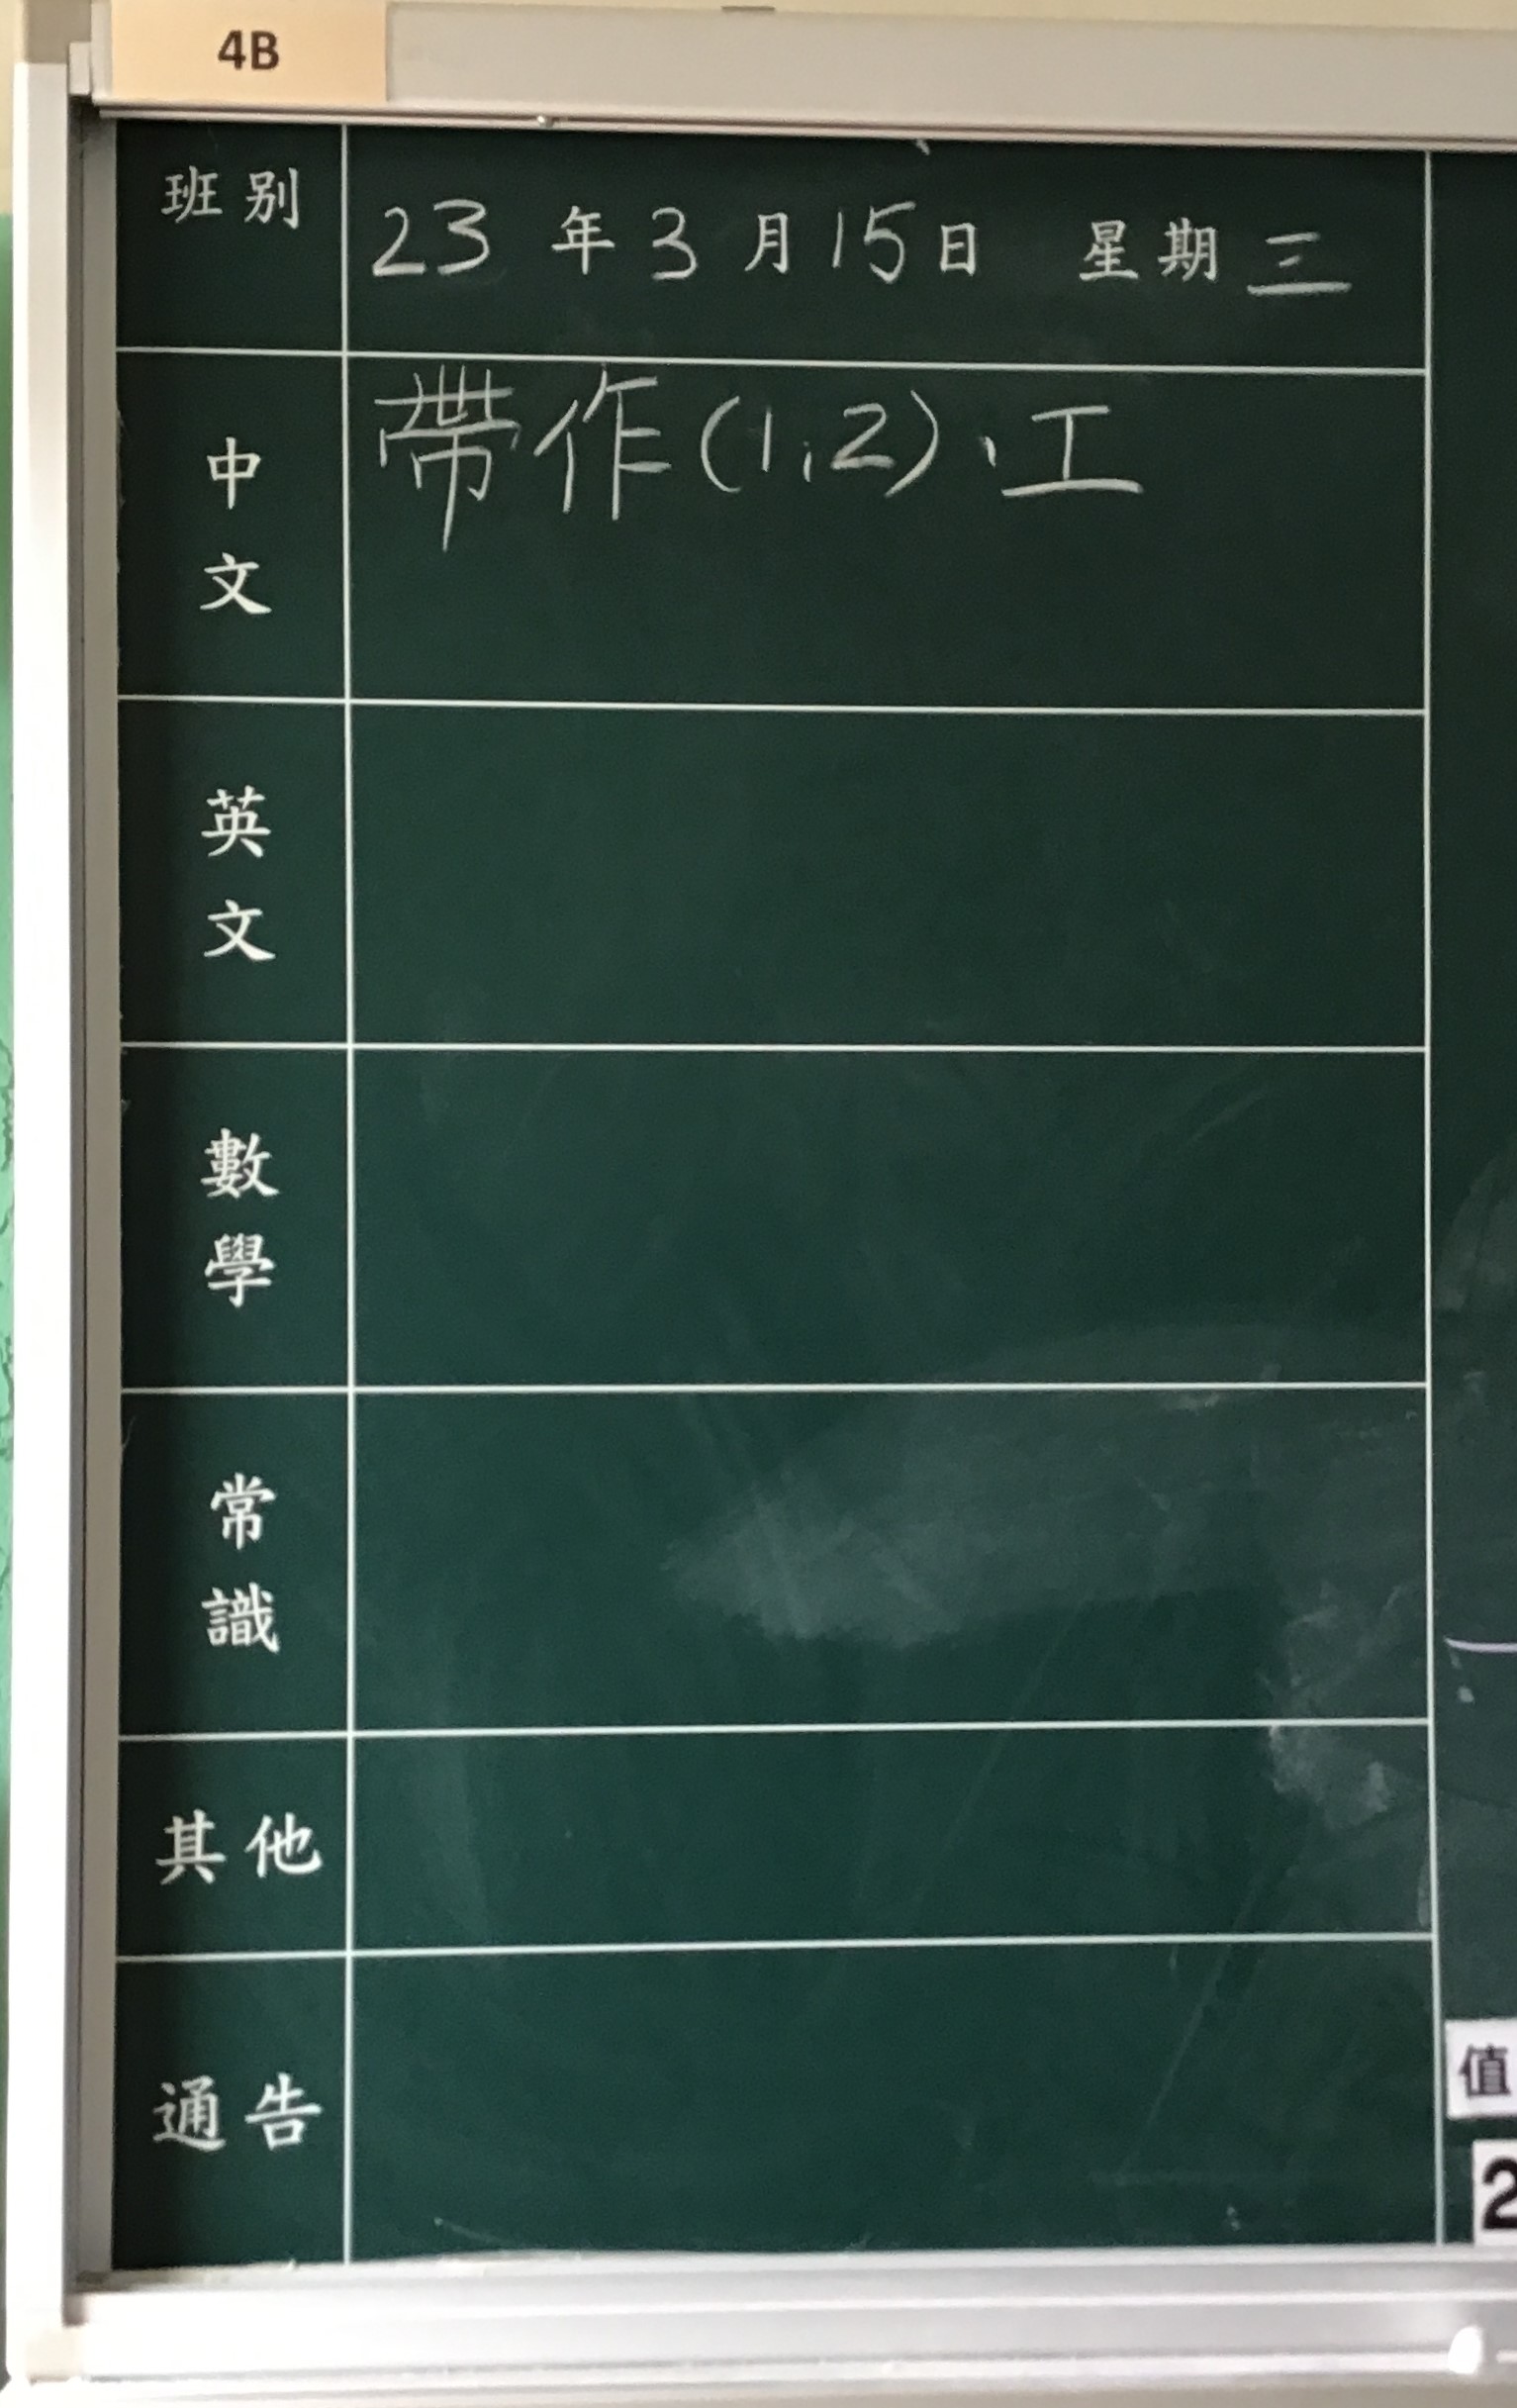 4B
班別
23 年 3 月 15 日 星期 三
中文
帶作(1,2)、工
英文
數學
常識
其他
通告
值
2